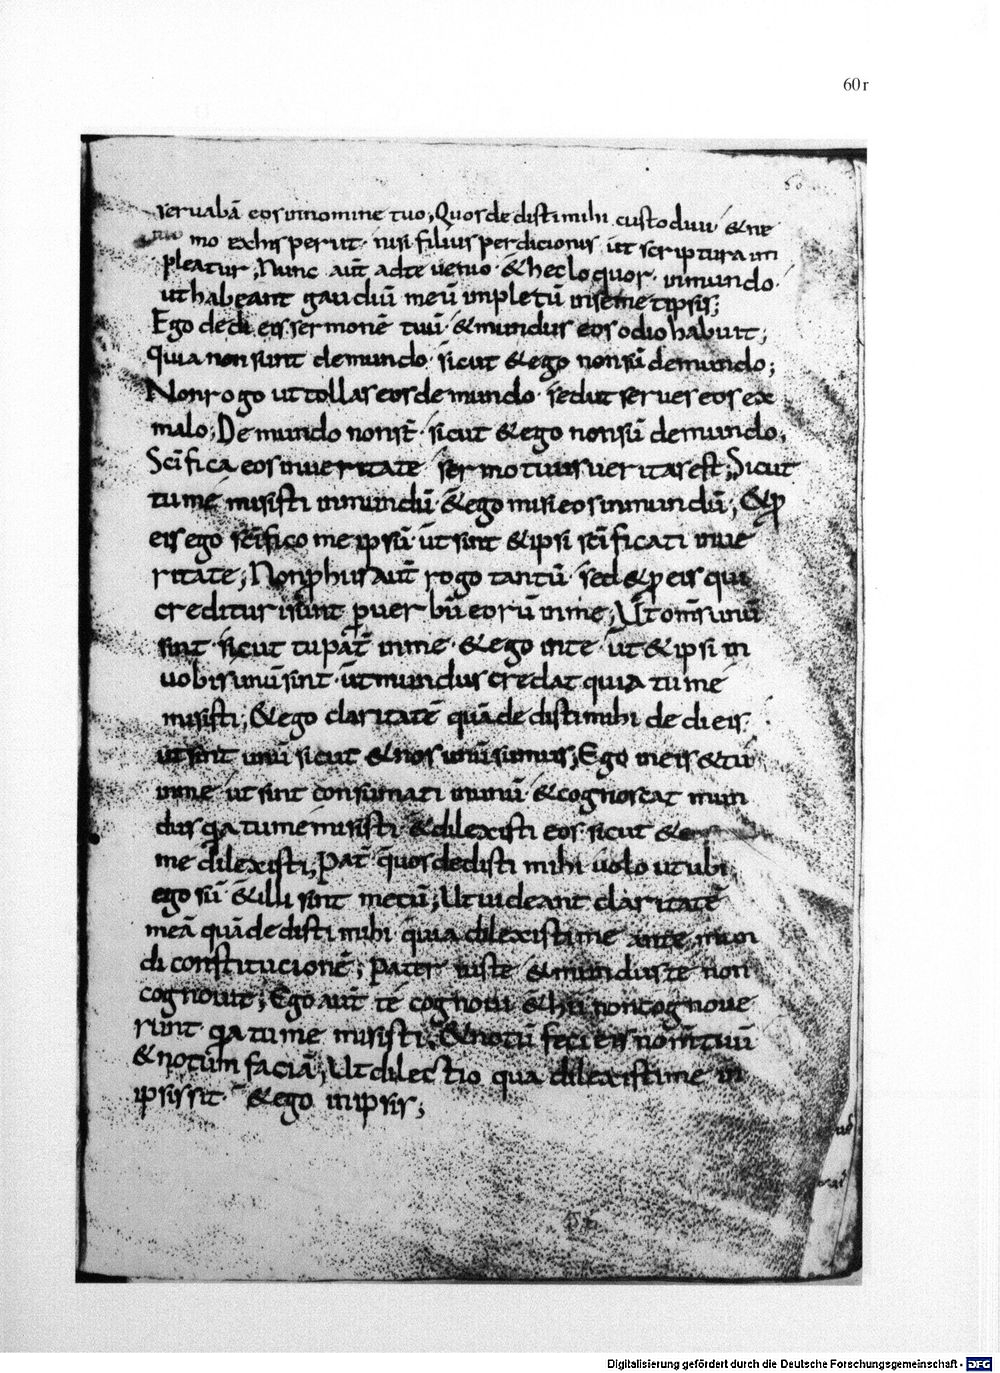 60r
60
seruabā eos innomine tuo; Quos dedisti mihi custodiui & ne
mo exhis periit· nisi filius perdicionis ut scriptura im
pleatur; Nunc aut̄ adte uenio· & hec loquor· inmundo·
ut habeant gaudiū meū inpletū insemetipsis;
Ego dedi eis sermonē tuū· & mundus eos odio habuit;
quia non sunt demundo· sicut & ego non sū demundo;
Non rogo ut tollas eos de mundo· sed ut serues eos ex
malo; De mundo nonst̄· sicut & ego nonsū demundo;
Scīfica eos inueritate· sermo tuus ueritas est; Sicut
tu me misisti inmundū· & ego misi eos inmundū; & p
eis ego scīfico me ipsū· ut sint & ipsi scīficati inue
ritate; Non p his aut̄ rogo tantū· sed & p eis qui
credituri sunt p uerbū eorū inme; Ut om̄s unū
sint· sicut tu pat̄ inme· & ego inte· ut & ipsi in
uobis unū sint· ut mundus credat quia tu me
misisti; & ego claritatē quā dedisti mihi dedi eis·
ut sint unū sicut & nos unū sumus; Ego ineis & tu
inme ut sint consūmati inunū· & cognoscat mun
dus qa tu me misisti· & dilexisti eos· sicut &
me dilexisti; Pat̄ quos dedisti mihi uolo ut ubi
ego sū· & illi sint mecū; Ut uideant claritatē
meā quā dedisti mihi quia dilexisti me ante mun
di constitucionē; Pater iuste & mundus te non
cognouit; Ego aut̄ te cognoui & hii non cognoue
runt· qa tu me misisti; & notū feci eis nom̄ tuū
& notum faciā; Ut dilectio qua dilexisti me in
ipsis sit· & ego inipsis;
Digitalisierung gefördert durch die Deutsche Forschungsgemeinschaft - DFG